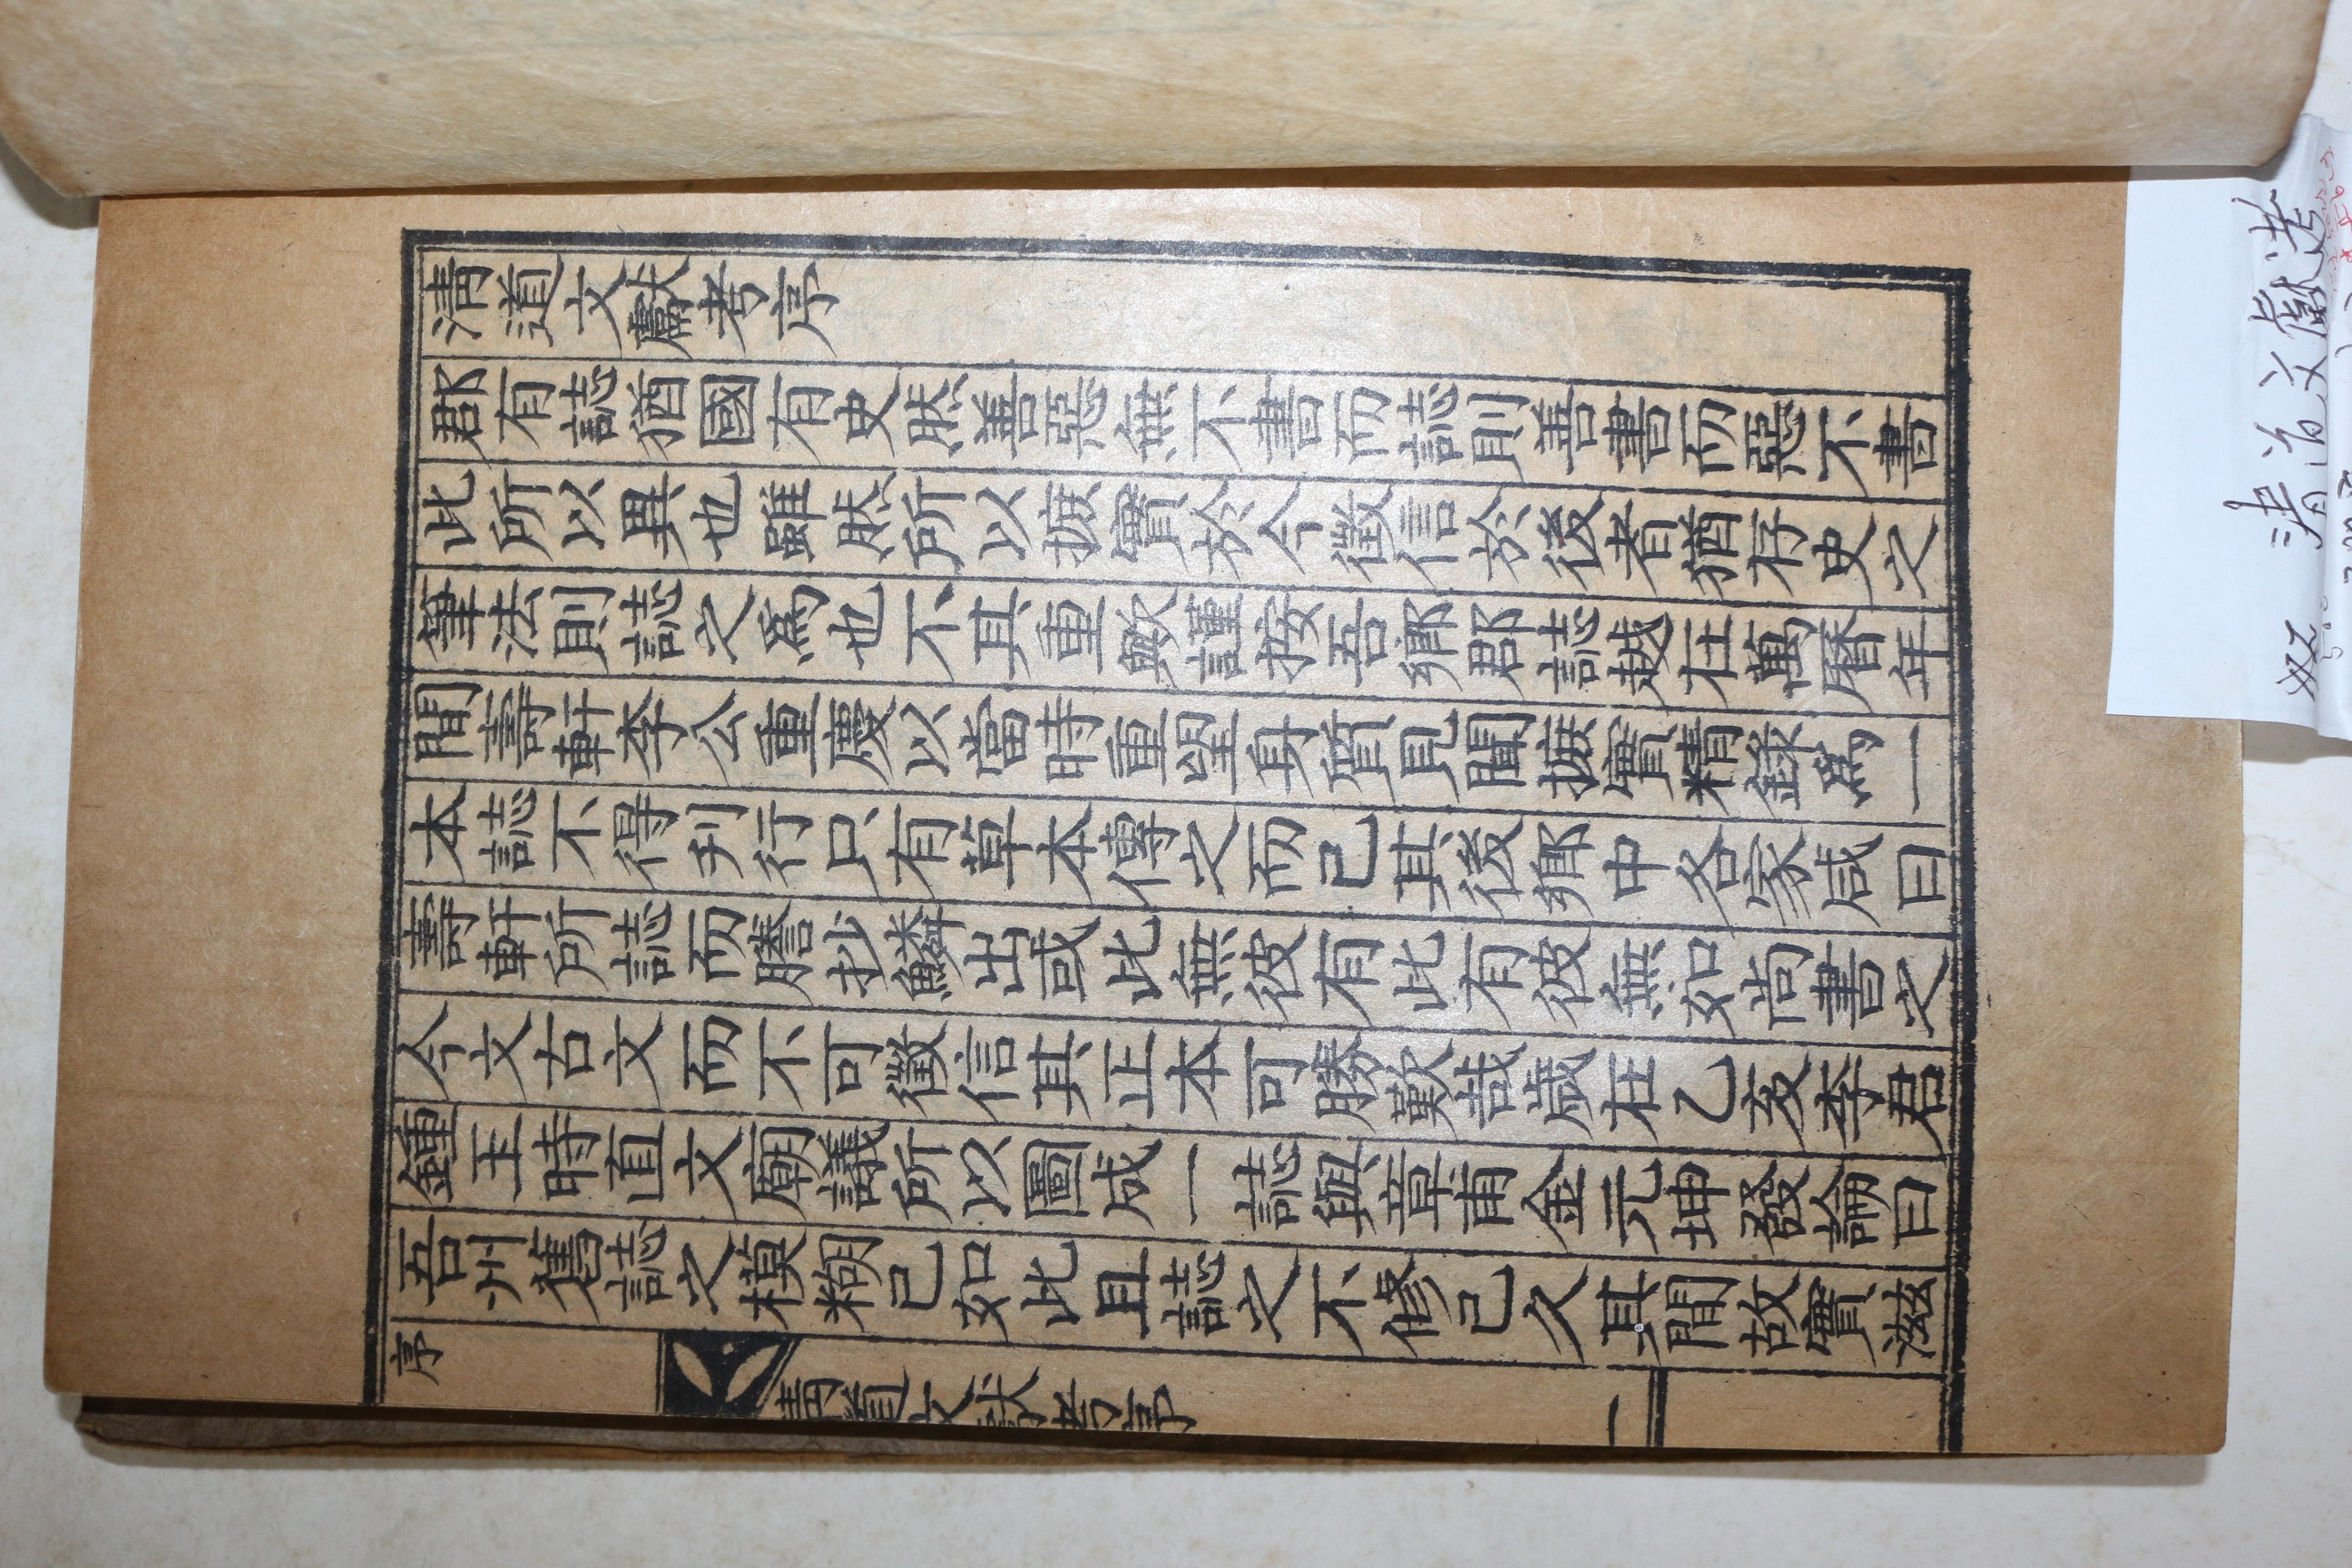 淸道文獻考序
郡有誌猶國有史然善惡無不書而誌則善書而惡不書
此所以異也雖然所以摭實於今徵信於後者猶存史之
筆法則誌之爲也不其重歟謹按吾鄕郡誌越在萬曆年
間壽軒李公重慶以當時重望身質見聞摭實精錄爲一
本誌不得刋行只有草本傳之而已其後鄕中各家咸曰
壽軒所誌而謄抄鱗出或此無彼有此有彼無如尙書之
今文古文而不可徵信其正本可勝歎哉歲在乙亥李君
鍾玉時直文廟議所以圖成一誌與章甫金元坤發論曰
吾州舊誌之模糊已如此且誌之不修已久其間故實滋
序
淸道文獻考序
一
清道文獻考